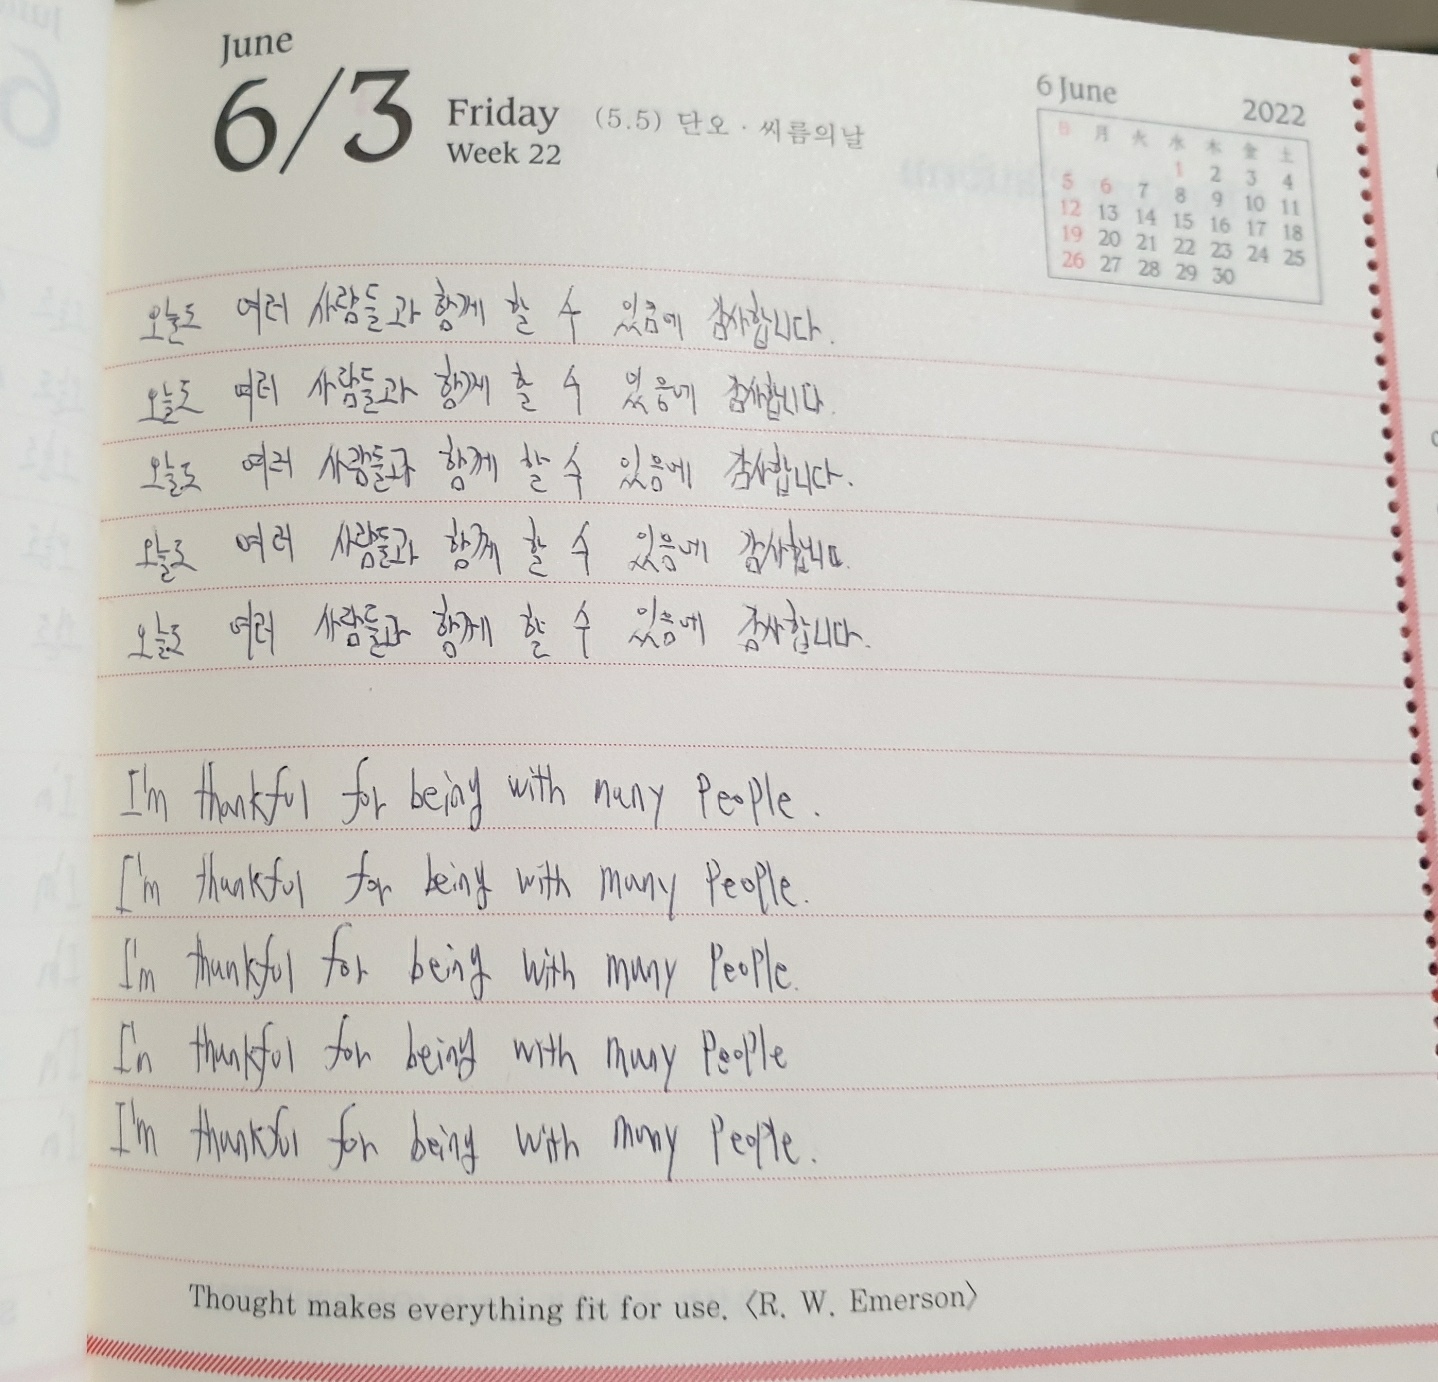 June
6/3 Friday (5.5) 단오 · 씨름의날
Week 22
6 June 2022
日 月 火 水 木 金 土
1 2 3 4
5 6 7 8 9 10 11
12 13 14 15 16 17 18
19 20 21 22 23 24 25
26 27 28 29 30
오늘도 여러 사람들과 함께 할 수 있음에 감사합니다.
오늘도 여러 사람들과 함께 할 수 있음에 감사합니다.
오늘도 여러 사람들과 함께 할 수 있음에 감사합니다.
오늘도 여러 사람들과 함께 할 수 있음에 감사합니다.
오늘도 여러 사람들과 함께 할 수 있음에 감사합니다.
I'm thankful for being with many people.
I'm thankful for being with many people.
I'm thankful for being with many people.
I'm thankful for being with many people
I'm thankful for being with many people.
Thought makes everything fit for use. 〈R. W. Emerson〉